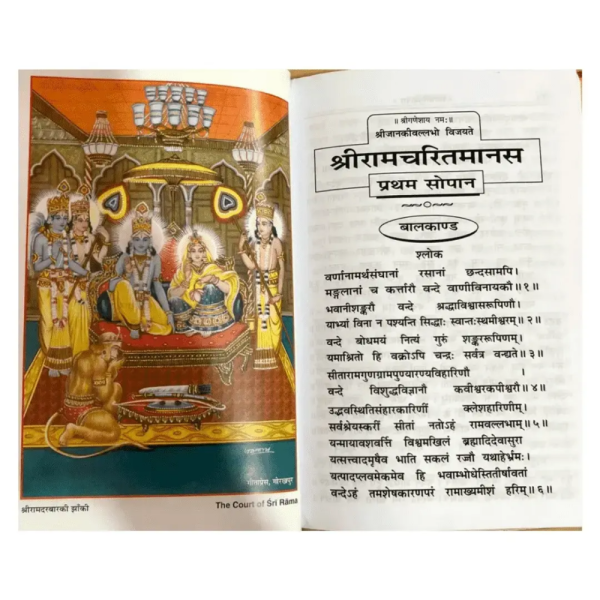 गीताप्रेस, गोरखपुर
श्रीरामदरबारकी झाँकी
The Court of Śrī Rāma
॥ श्रीगणेशाय नमः॥
श्रीजानकीवल्लभो विजयते
श्रीरामचरितमानस
प्रथम सोपान
बालकाण्ड
श्लोक
वर्णानामर्थसंघानां रसानां छन्दसामपि।
मङ्गलानां च कर्त्तारौ वन्दे वाणीविनायकौ॥१॥
भवानीशङ्करौ वन्दे श्रद्धाविश्वासरूपिणौ।
याभ्यां विना न पश्यन्ति सिद्धाः स्वान्तःस्थमीश्वरम्॥२॥
वन्दे बोधमयं नित्यं गुरुं शङ्कररूपिणम्।
यमाश्रितो हि वक्रोऽपि चन्द्रः सर्वत्र वन्द्यते॥३॥
सीतारामगुणग्रामपुण्यारण्यविहारिणौ।
वन्दे विशुद्धविज्ञानौ कवीश्वरकपीश्वरौ॥४॥
उद्भवस्थितिसंहारकारिणीं क्लेशहारिणीम्।
सर्वश्रेयस्करीं सीतां नतोऽहं रामवल्लभाम्॥५॥
यन्मायावशवर्त्ति विश्वमखिलं ब्रह्मादिदेवासुरा
यत्सत्त्वादमृषैव भाति सकलं रज्जौ यथाहेर्भ्रमः।
यत्पादप्लवमेकमेव हि भवाम्भोधेस्तितीर्षावतां
वन्देऽहं तमशेषकारणपरं रामाख्यमीशं हरिम्॥६॥